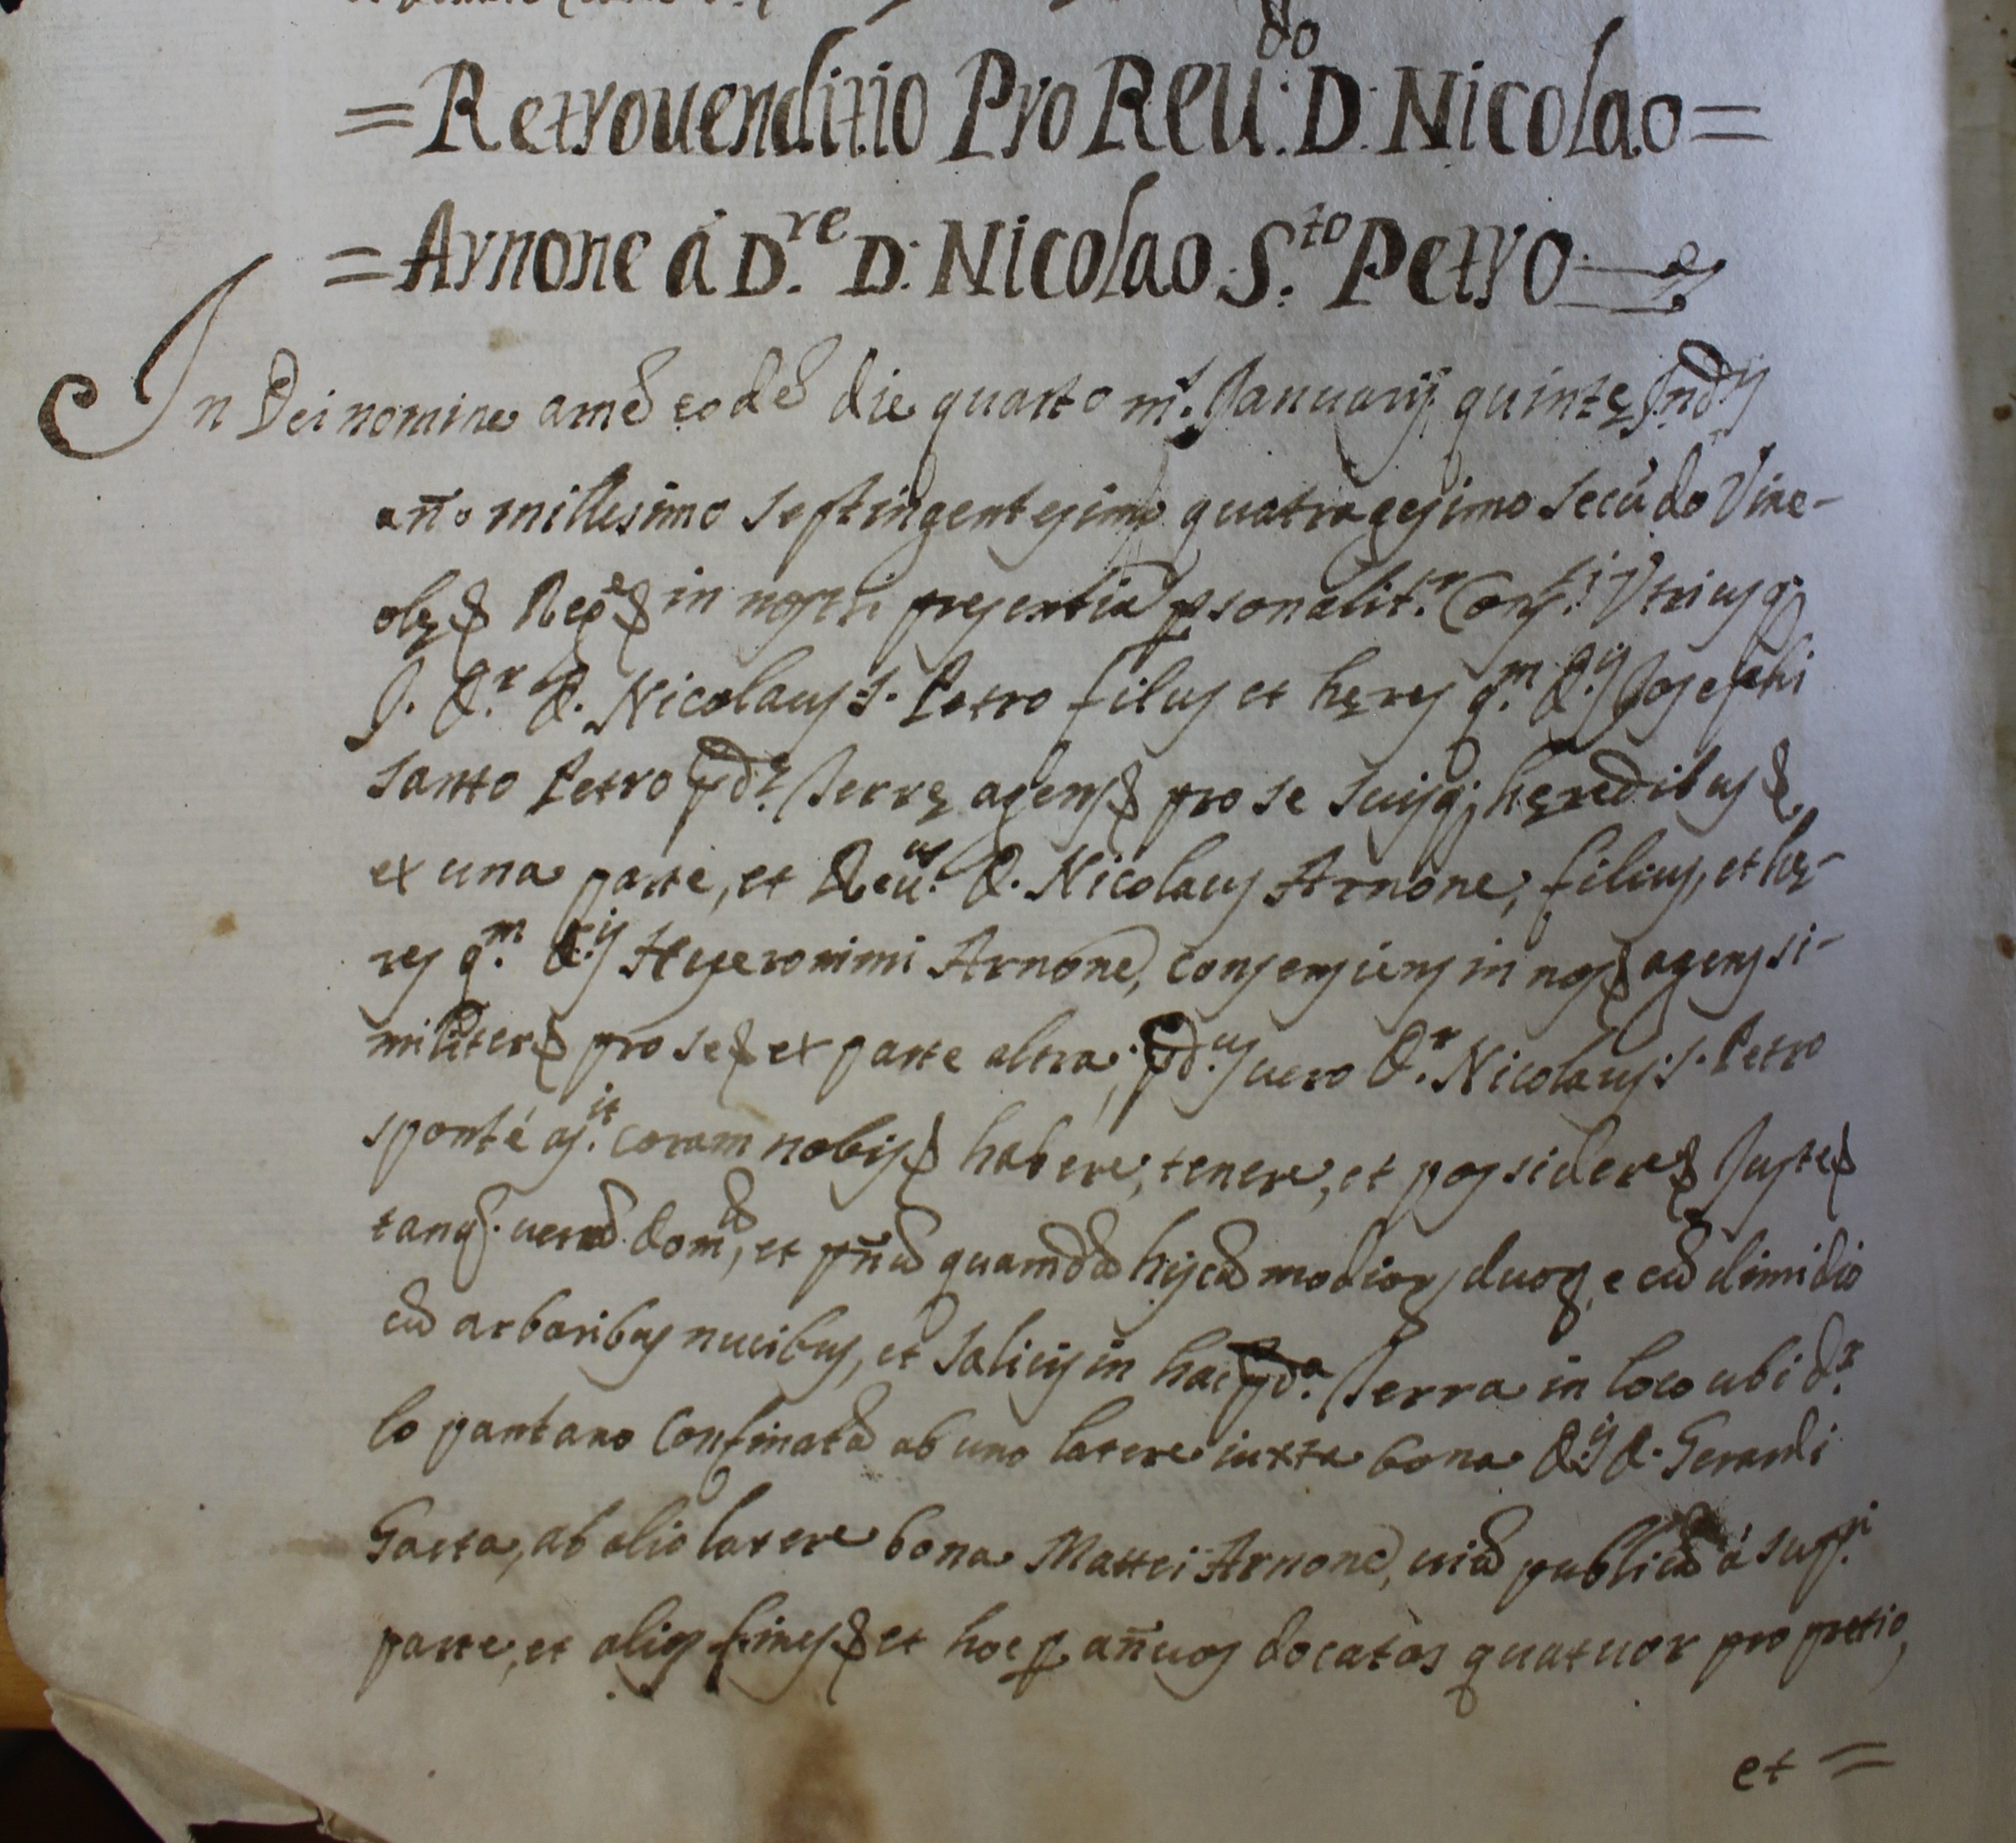 =Retrouenditio Pro Reu:do D: Nicolao=
=Arnone á D.re D: Nicolao S:to Petro
In Dei nomine amē eodē die quarto m.s Januarij quintę Ind.
año millesimo septingentesimo quatragesimo secūdo Vine-
olę & Reg.e & in nostri presentia psonalit.r Cons.ti Vtriusq.
J. D.r D. Nicolaus S. Petro filius et hęres q.m D.ij Josephi
Santo Petro pd.ę Terrę agens & pro se suisq; hęredibus &
ex una parte, et Reu.us D. Nicolaus Arnone, filius, et hę-
res q.m D.ij Hyeronimi Arnone, consensiens in nos & agens si-
militer & pro se & ex parte altra; pd.us uero D.r Nicolaus S. Petro
sponté as.it coram nobis & habere, tenere, et possidere & Juste &
tanq. uerū dom, et pñū quamdā hiscā modior duor, e cū dimidio
cū arboribus nucibus, et salicis in hac pd.a Terra in loco ubi d.r
lo pantano Confinatā ab uno latere iuxta bona D.ij D. Gerardi
Gaeta, ab alio latere bona Mattei Arnone, uiā publicā á sup.ri
parte, et alios fines & et hoc p añuos docatos quatuor pro pretio,
et =